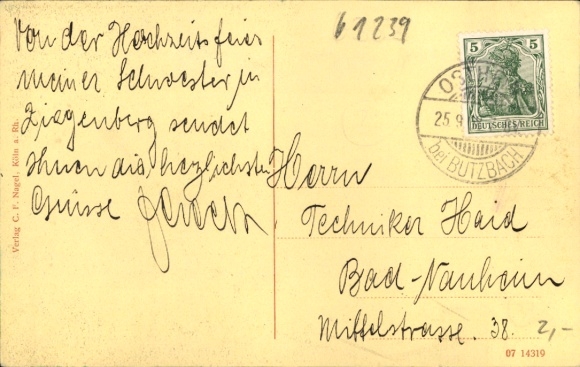 Von der Hochzeitsfeier
meiner Schwester in
Ziegenberg sendet
Ihnen die herzlichsten
Grüsse
61239
5 5
DEUTSCHES REICH
25.9
bei BUTZBACH
Herrn
Techniker Haid
Bad-Nauheim
Mittelstrasse. 38.
2,-
07 14319
Verlag C. F. Nagel, Köln a. Rh.